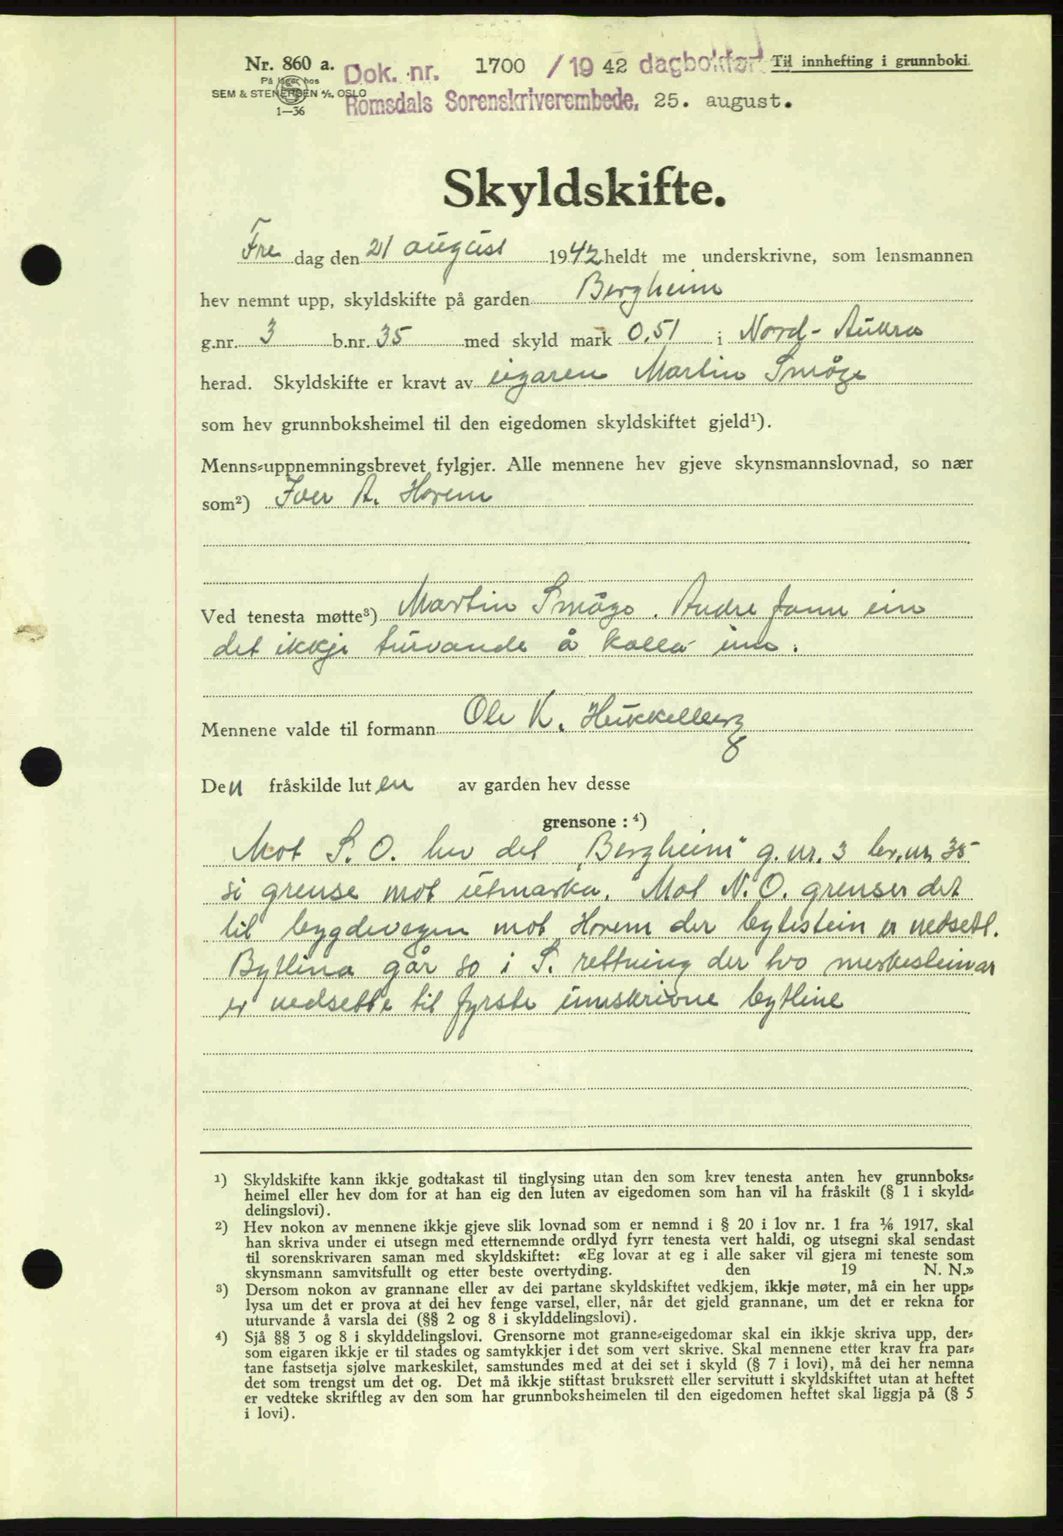 Nr. 860 a.
På lager hos
SEM & STENERSEN A/S, OSLO
1—36
Dok. nr. 1700 / 19 42 dagbokført
Til innhefting i grunnboki.
Romsdals Sorenskriverembede, 25. august.
Skyldskifte.
Fre dag den 21 august 1942 heldt me underskrivne, som lensmannen
hev nemnt upp, skyldskifte på garden Bergheim
g.nr. 3 b.nr. 35 med skyld mark 0,51 i Nord-Aukra
herad. Skyldskifte er kravt av eigaren Martin Småge
som hev grunnboksheimel til den eigedomen skyldskiftet gjeld¹).
Menns-uppnemningsbrevet fylgjer. Alle mennene hev gjeve skynsmannslovnad, so nær
som²) Iver A. Horem
Ved tenesta møtte³) Martin Småge. Andre fann ein
det ikkje turvande å kalla inn.
Mennene valde til formann Ole K. Hukkelberg
Den fråskilde luten av garden hev desse
grensone: ⁴)
Mot S. O. hev det "Bergheim" g. nr. 3 br. nr. 35
si grense mot utmarka. Mot N. O. grenser det
til bygdevegen mot Horem der bytestein er nedsett.
Bytlina går so i S. rettning der tvo merkesteinar
er nedsette til fyrste innskrivne bytline
¹) Skyldskifte kann ikkje godtakast til tinglysing utan den som krev tenesta anten hev grunnboks-
heimel eller hev dom for at han eig den luten av eigedomen som han vil ha fråskilt (§ 1 i skyld-
delingslovi).
²) Hev nokon av mennene ikkje gjeve slik lovnad som er nemnd i § 20 i lov nr. 1 fra 1/6 1917, skal
han skriva under ei utsegn med etternemnde ordlyd fyrr tenesta vert haldi, og utsegni skal sendast
til sorenskrivaren saman med skyldskiftet: «Eg lovar at eg i alle saker vil gjera mi teneste som
skynsmann samvitsfullt og etter beste overtyding. den 19 N. N.»
³) Dersom nokon av grannane eller av dei partane skyldskiftet vedkjem, ikkje møter, må ein her upp-
lysa um det er prova at dei hev fenge varsel, eller, når det gjeld grannane, um det er rekna for
uturvande å varsla dei (§§ 2 og 8 i skylddelingslovi).
⁴) Sjå §§ 3 og 8 i skylddelingslovi. Grensorne mot granne-eigedomar skal ein ikkje skriva upp, der-
som eigaren ikkje er til stades og samtykkjer i det som vert skrive. Skal mennene etter krav fra par-
tane fastsetja sjølve markeskilet, samstundes med at dei set i skyld (§ 7 i lovi), må dei her nemna
det som trengst um det og. Det må ikkje stiftast bruksrett eller servitutt i skyldskiftet utan at heftet
er vedteke skriftleg av den som har grunnboksheimelen til den eigedomen heftet skal liggja på (§ 5
i lovi).